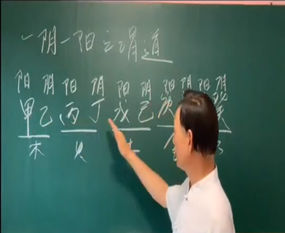 一阴一阳之谓道
阳阴阳阴阳阴阳阴阳阴
甲乙丙丁戊己庚
木火土